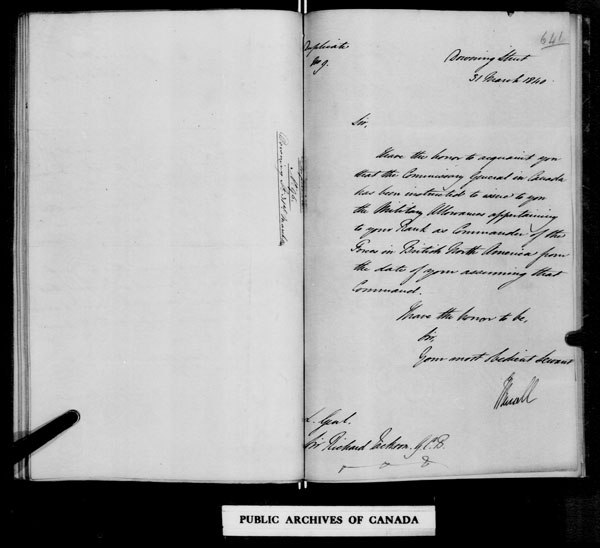 641
Duplicate
No 9.
Downing Street
31 March 1840
Sir,
I have the honor to acquaint you
that the Commissary General in Canada
has been instructed to issue to you
the Military Allowances appertaining
to your Rank as Commander of the
Forces in British North America from
the date of your assuming that
Command.
I have the honor to be,
Sir,
Your most obedient Servant
L. Genl.
Sir Richard Jackson. G.C.B.
Downing St 31 March
PUBLIC ARCHIVES OF CANADA